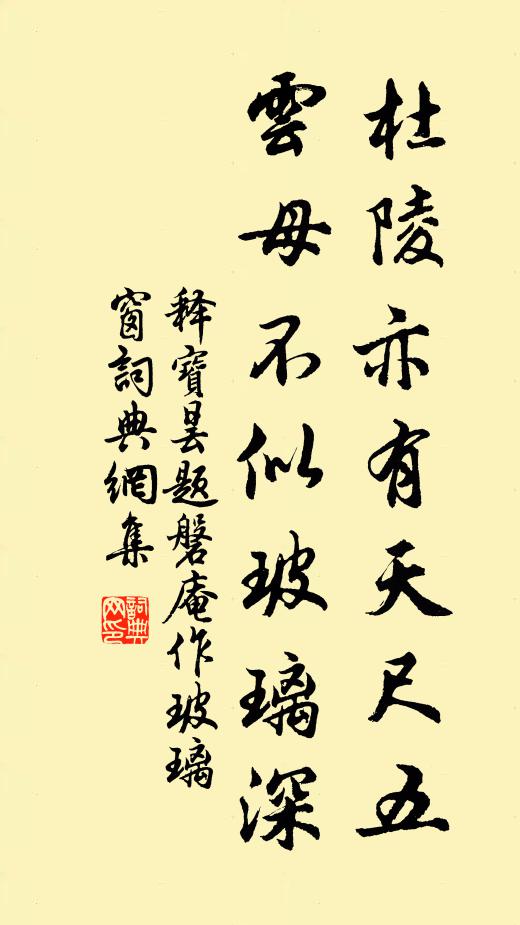 杜陵亦有天尺五
雲母不似玻璃深
释寶昙題磐庵作玻璃
窗詞典網集
詞典
网印